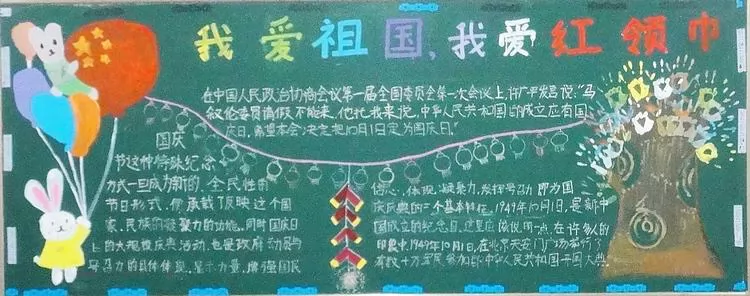 我爱祖国,我爱红领巾
在中国人民政治协商会议第一届全国委员会第一次会议上,许广平发言说:"马
叙伦委员请假不能来,他托我来说,中华人民共和国的成立应有国
庆日,希望本会决定把10月1日定为国庆日。"
国庆
节这种特殊纪念
方式一旦成为新的、全民性的
节日形式,便承载了反映这个国
家、民族的凝聚力的功能。同时国庆日
上的大规模庆典活动,也是政府动员与
号召力的具体体现。显示力量、增强国民
信心,体现凝聚力,发挥号召力,即为国
庆庆典的三个基本特征。1949年10月1日,是新中
国成立的纪念日。这里应该说明一点,在许多人的
印象中,1949年10月1日,在北京天安门广场举行了
有数十万军民参加的中华人民共和国开国大典